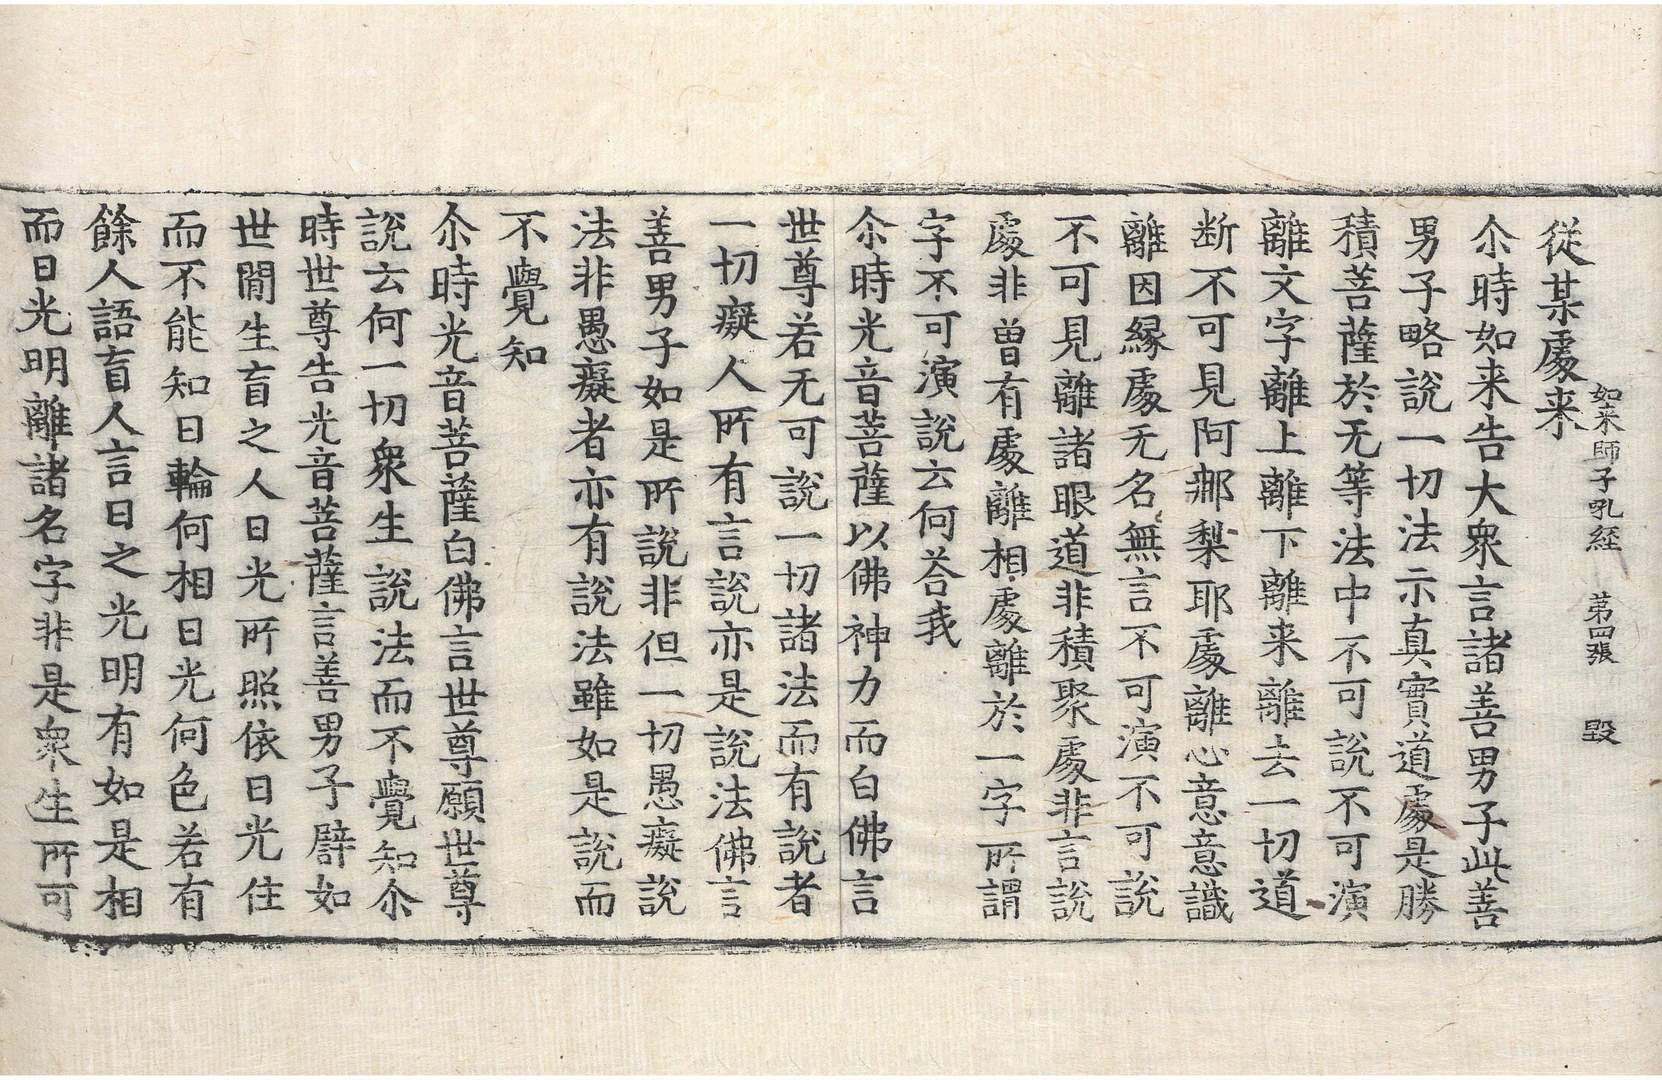 從某處来
如来師子吼経 第四張 毀
尒時如来告大衆言諸善男子此善
男子略説一切法示真實道處是勝
積菩薩於无等法中不可説不可演
離文字離上離下離来離去一切道
断不可見阿𨙻梨耶處離心意意識
離因縁處无名無言不可演不可説
不可見離諸眼道非積聚處非言説
處非曽有處離相處離於一字所謂
字不可演説云何荅我
尒時光音菩薩以佛神力而白佛言
世尊若无可説一切諸法而有説者
一切癡人所有言説亦是説法佛言
善男子如是所説非但一切愚癡説
法非愚癡者亦有説法雖如是説而
不覺知
尒時光音菩薩白佛言世尊願世尊
説云何一切衆生説法而不覺知尒
時世尊告光音菩薩言善男子辟如
世間生盲之人日光所照依日光住
而不能知日輪何相日光何色若有
餘人語盲人言日之光明有如是相
而日光明離諸名字非是衆生所可